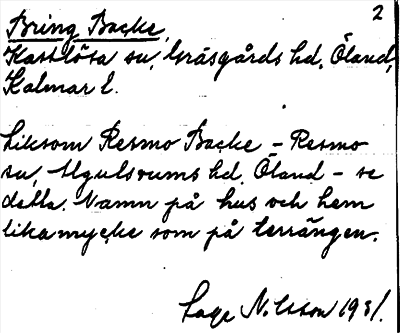 2
Bring Backe,
Kastlösa sn, Gräsgårds hd, Öland,
Kalmar l.
Liksom Resmo Backe – Resmo
sn, Algutsrums hd. Öland – se
detta. Namn på hus och hem
lika mycke som på terrängen.
Lage Nilsson 1931.